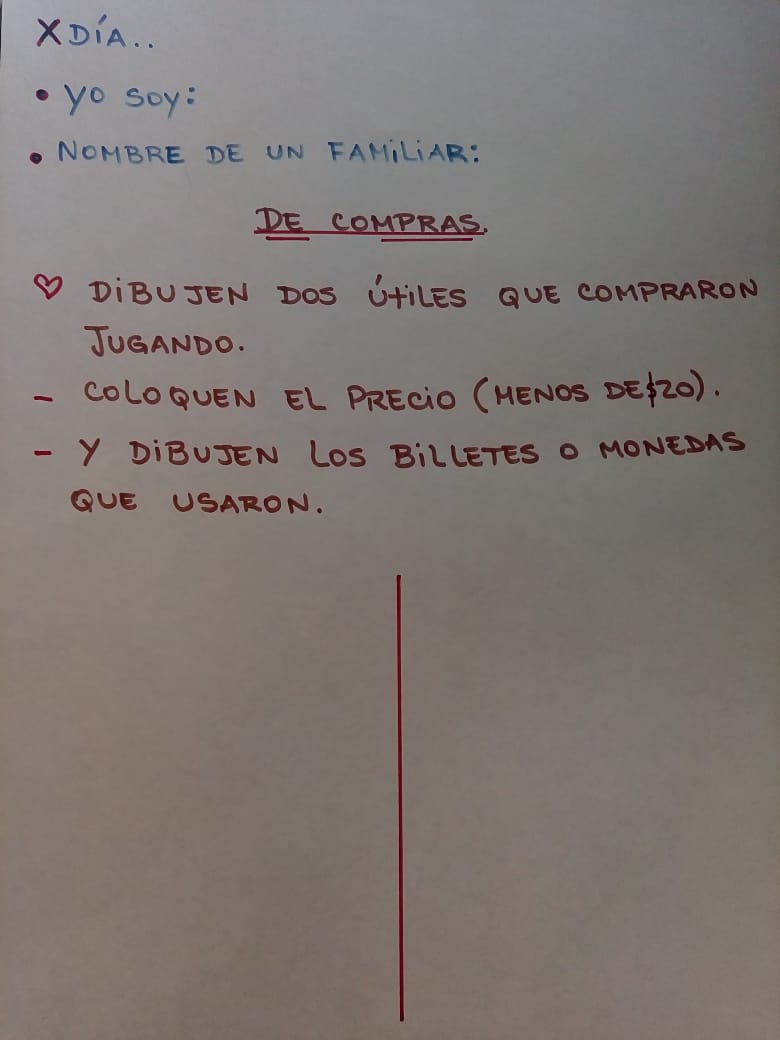 X DÍA..
• YO SOY:
• NOMBRE DE UN FAMILIAR:
DE COMPRAS.
♡ DIBUJEN DOS ÚTILES QUE COMPRARON
JUGANDO.
- COLOQUEN EL PRECIO (MENOS DE $20).
- Y DIBUJEN LOS BILLETES O MONEDAS
QUE USARON.